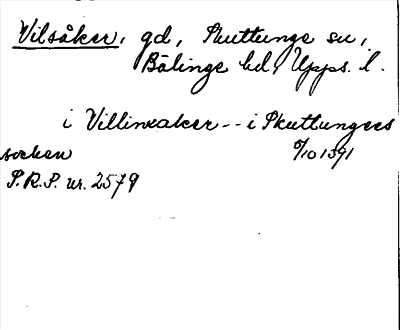 Vilsåker, gd, Skuttunge sn,
Bälinge hd, Upps. l.
i Villinxaker -- i Skuttungess
socken 6/10 1391
S.R.P. nr. 2579